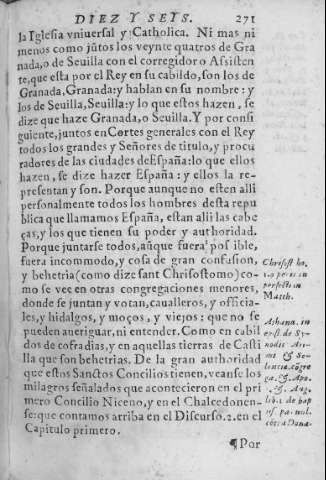 DIEZ Y SEYS. 271
la Iglesia vniuersal y Catholica. Ni mas ni
menos como jũtos los veynte quatros de Gra
nada, o de Seuilla con el corregidor o Asisten
te, que esta por el Rey en su cabildo, son los de
Granada, Granada: y hablan en su nombre: y
los de Seuilla, Seuilla: y lo que estos hazen, se
dize que haze Granada, o Seuilla. Y por consi
guiente, juntos en Cortes generales con el Rey
todos los grandes y Señores de titulo, y procu
radores de las ciudades de España: lo que ellos
hazen, se dize hazer España: y ellos la re-
presentan y son. Porque aunque no esten alli
personalmente todos los hombres desta repu
blica que llamamos España, estan alli las cabe
ças, y los que tienen su poder y authoridad.
Porque juntarse todos, aũque fuera possible,
fuera incommodo, y cosa de gran confusion,
y behetria (como dize sant Chrisostomo) co-
mo se vee en otras congregaciones menores,
donde se juntan y votan, caualleros, y officia-
les, y hidalgos, y moços, y viejos: que no se
pueden aueriguar, ni entender. Como en cabil
dos de cofradias, y en aquellas tierras de Casti
lla que son behetrias. De la gran authoridad
que estos Sanctos Concilios tienen, veanse los
milagros señalados que acontecieron en el pri
mero Concilio Niceno, y en el Chalcedonen-
se: que contamos arriba en el Discurso. 2. en el
Capitulo primero.
¶Por
Chrisost. ho.
in
Matth.
Athana. in
epist. de Sy-
nodis Ari-
mi & Se-